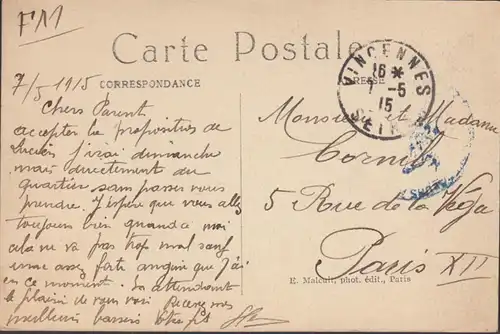 FM
Carte Postale
7/5 1915
CORRESPONDANCE
ADRESSE
VINCENNES
16 *
7 -5
15
SEINE
Chers Parent
accepter la proposition de
j'irai dimanche
mais directement du
quartier sans passer vous
prendre. J'espère que vous allez
toujours bien quand a moi
cela ne va pas trop mal sauf
une assez forte angine que j'ai
en ce moment. En attendant
le plaisir de vous voir Recevez mes
meilleurs baisers Votre fils
Monsieur et Madame
Cornill
5 Rue de la Véga
Paris XII
E. Malcuit, phot. édit., Paris